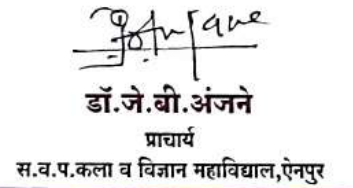 डॉ.जे.बी.अंजने
प्राचार्य
स.व.प.कला व विज्ञान महाविद्याल,ऐनपुर